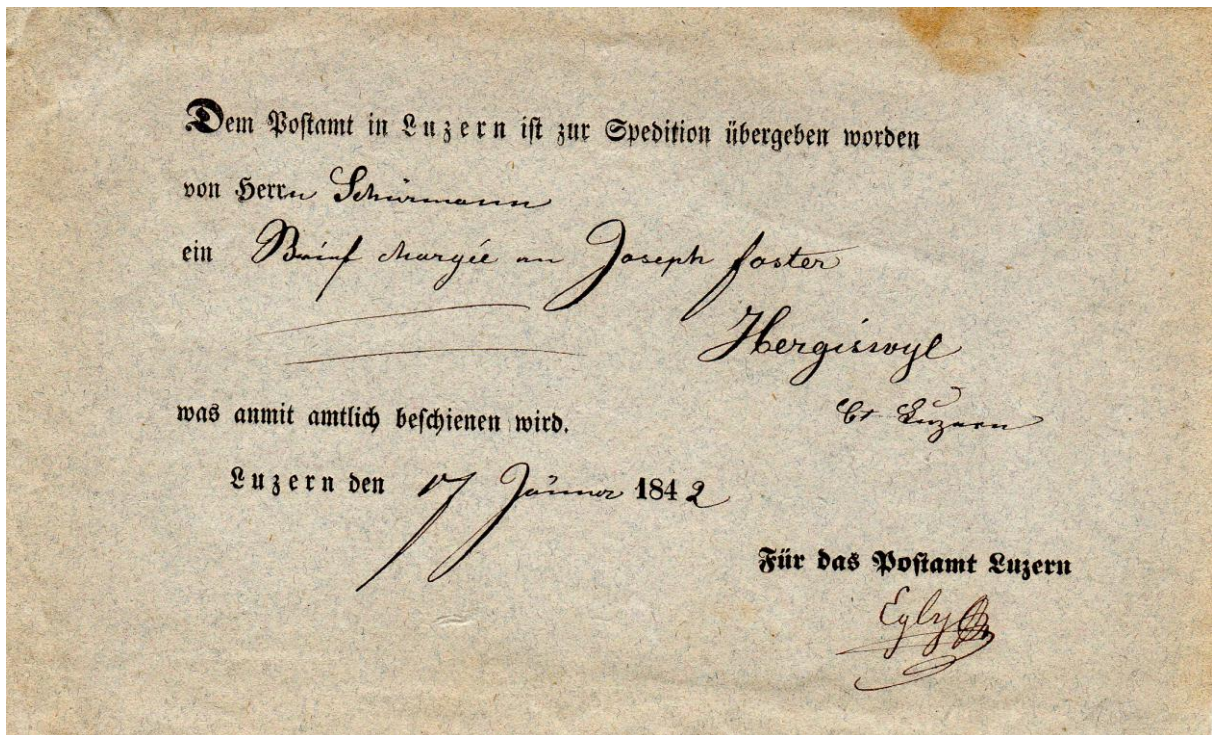 Dem Postamt in Luzern ist zur Spedition übergeben worden
von Herrn Schürmann
ein Brief chargée an Joseph foster
Hergiswyl
Ct Luzern
was anmit amtlich beschienen wird.
Luzern den 17 Jänner 1842
Für das Postamt Luzern
Egly